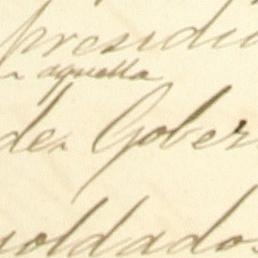 presidi
aquella
de Gober
soldados